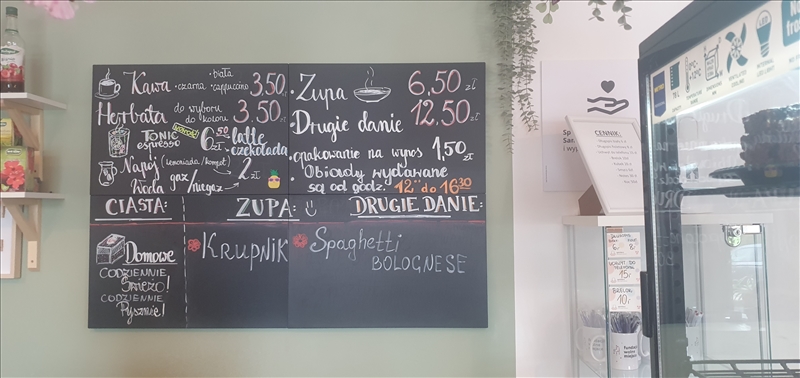 Kawa
• biała
• czarna • cappuccino
3,50
Herbata
do wyboru
do koloru
3.50
TONIC
espresso
NOWOŚĆ
6,50 zł
latte
czekolada
Napój (Lemoniada/kompot)
Woda gaz/niegaz
2 zł
• Zupa 6,50 zł
• Drugie danie 12,50 zł
• opakowanie na wynos 1,50 zł
• Obiady wydawane
są od godz. 12°° do 16³⁰
CIASTA:
Domowe
CODZIENNIE
Świeżo!
CODZIENNIE
Pysznie!
ZUPA:
KRUPNIK
DRUGIE DANIE:
Spaghetti
BOLOGNESE
CENNIK:
15,-
BRELOK
10,-